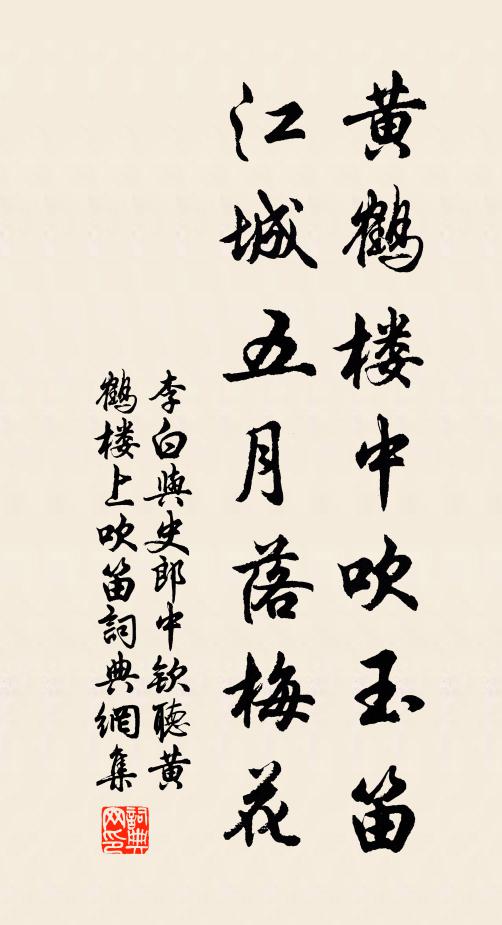 黄鶴楼中吹玉笛
江城五月落梅花
李白與史郎中欽聽黄
鶴楼上吹笛詞典網集
詞典
网印